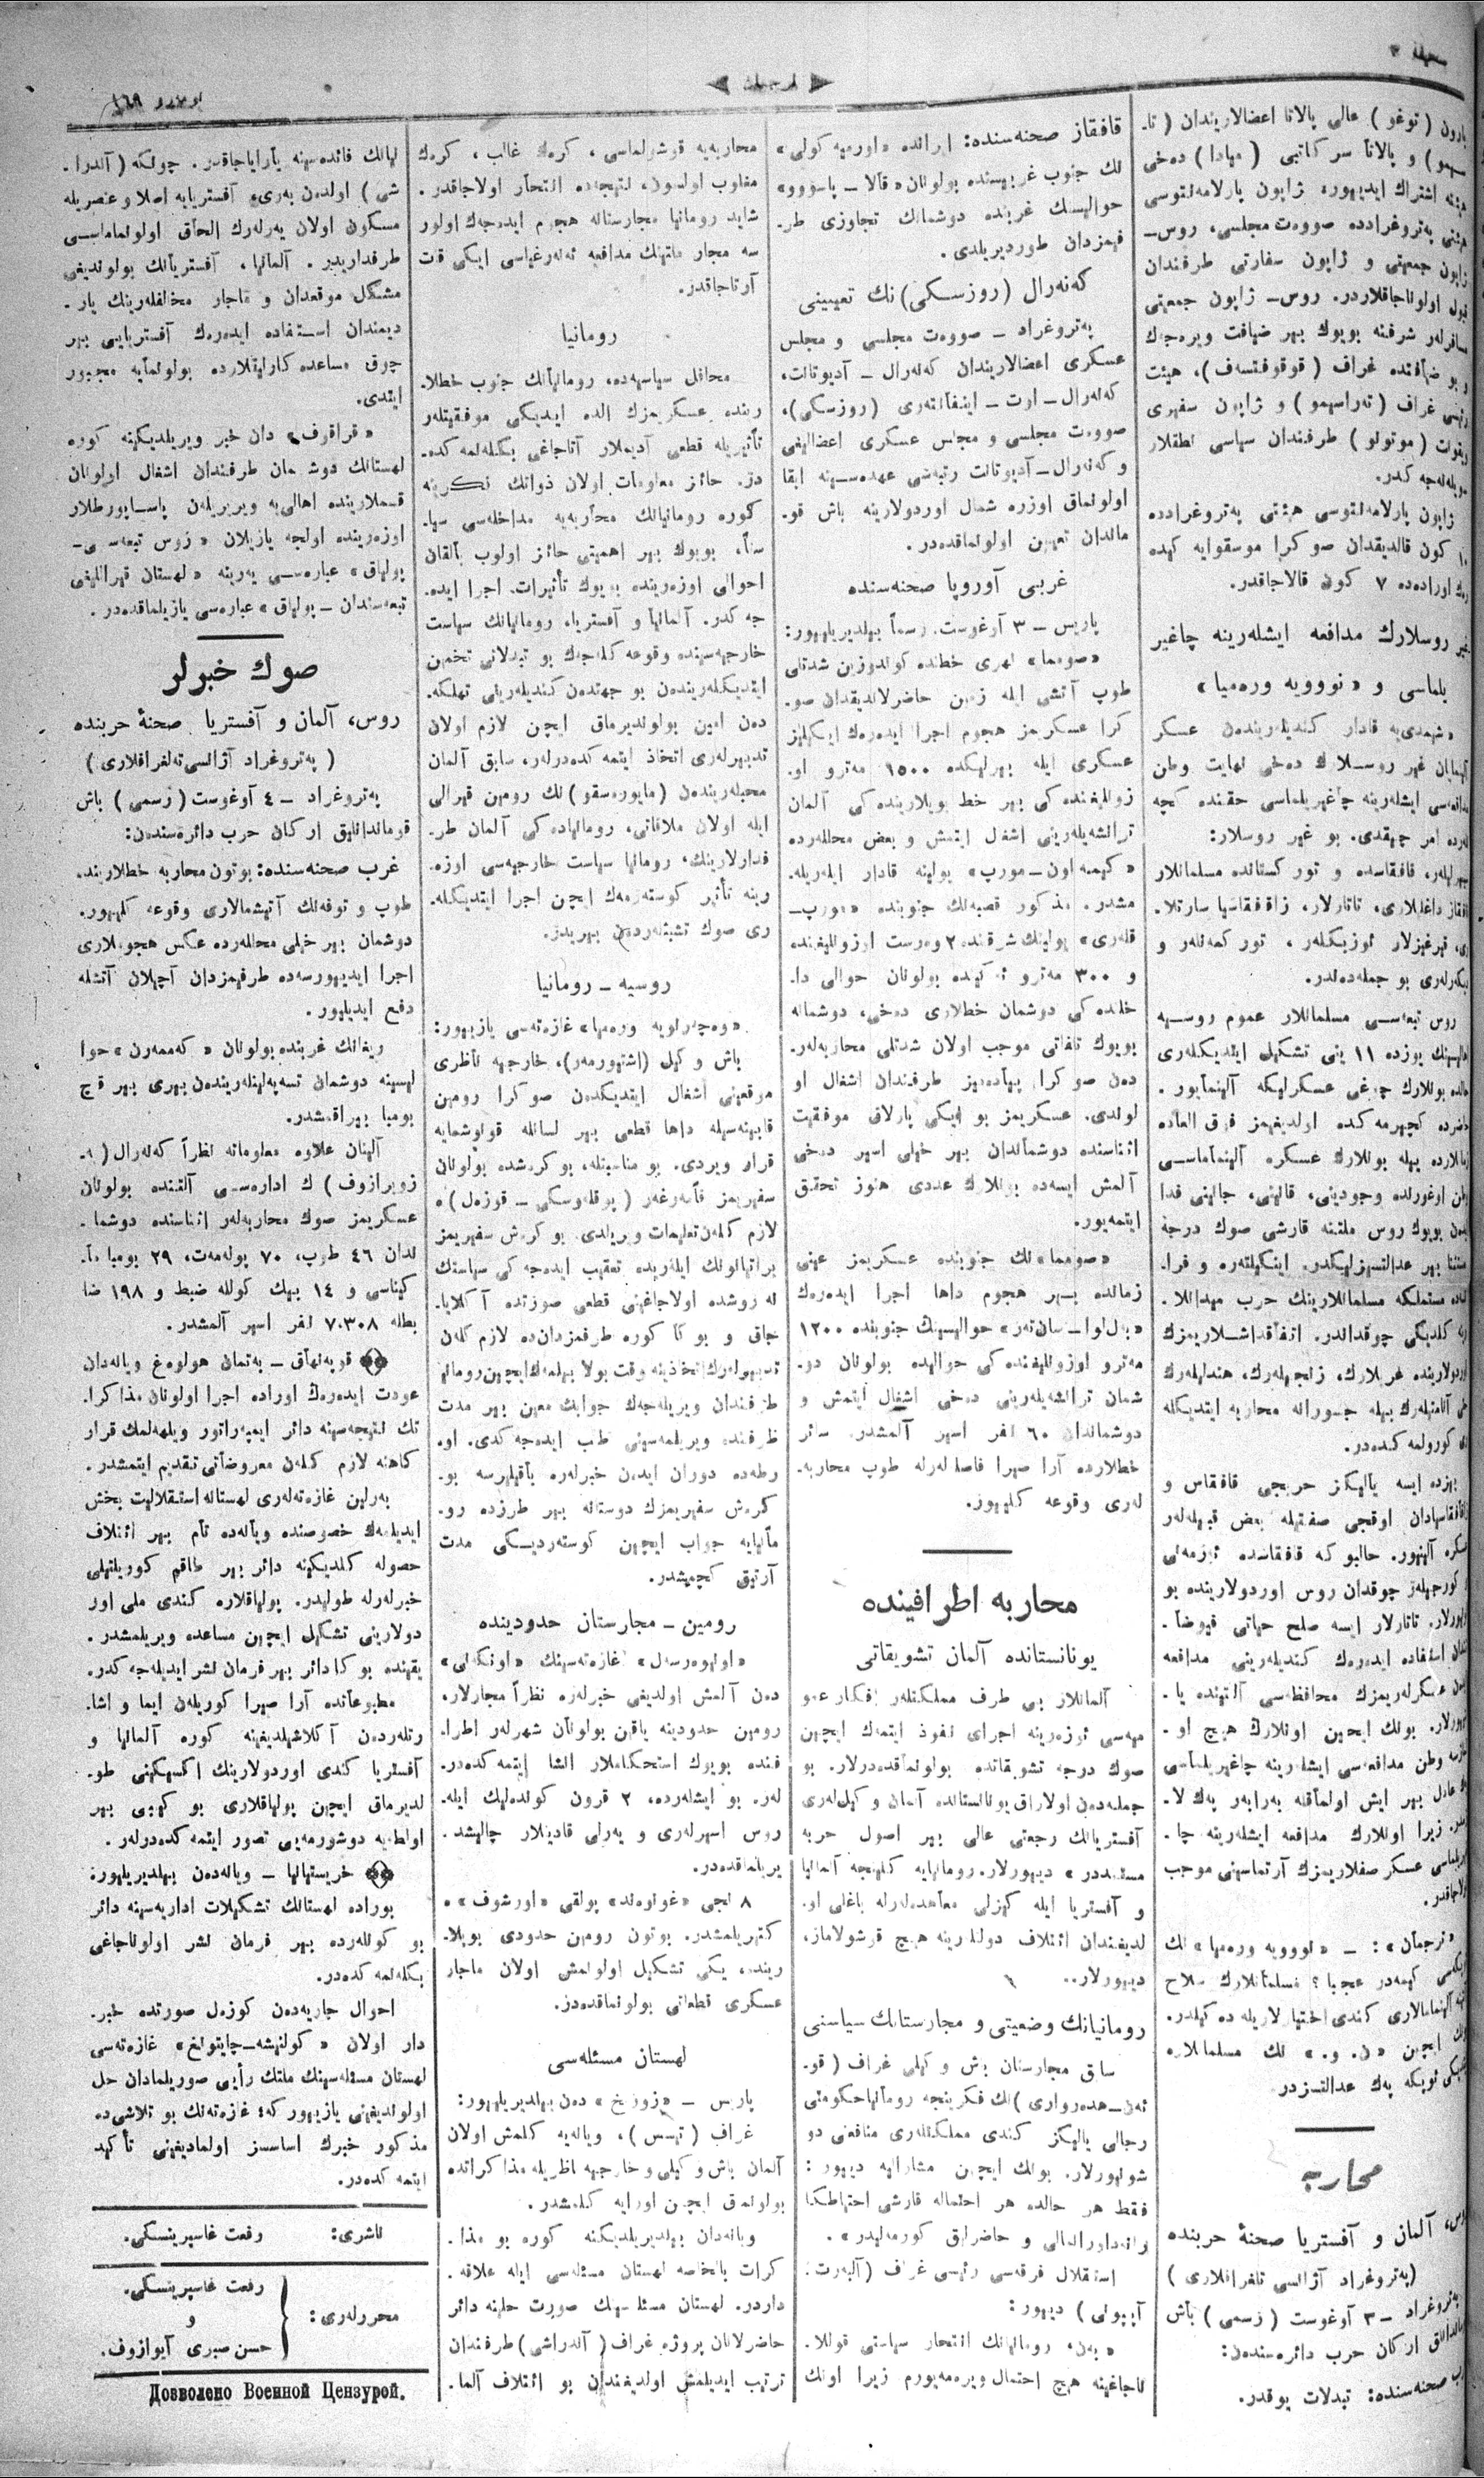 صحیفه ٢
ترجمان
نومرو ١٦٩
بارون (توغو) عالی پالاتا اعضالاریندن (تا-
و پالاتا سر کاتبی (میادا) دەخی
اشتراك ایدییور. ژاپون پارلامەنتوسی
پەتروغراددە صووەت مجلسی، روس-
ژاپون جمعیتی و ژاپون سفارتی طرفندان
قبول اولوناجاقلاردر. روس- ژاپون جمعیتی
مسافرلەر شرفنە بویوك بیر ضیافت ویرەجك
و بو ضیافتدە غراف (قوقوفتسەف)، هیئت
رئیسی غراف (تەراسیمو) و ژاپون سفیری
(موتونو) طرفندان سیاسی نطقلار
سویلەنەجەكدر.
ژاپون پارلامەنتوسی هیئتی پەتروغراددە
١٠ كون قالدیقدان صوكرا موسقوایە كیدە
رك اورادەدە ٧ كون قالاجاقدر.
غیر روسلارك مدافعە ایشلەرینە چاغیر
یلماسی و «نوویە ورەمیا»
شیمدی‌یە قادار كندیلەریندەن عسكر
آلینمایان غیر روسلارك دەخی نهایت وطن
مدافعەسی ایشلەرینە چاغیریلماسی حقندە كچە
لەردە امر چیقدی. بو غیر روسلار:
قافقاسدە و توركستاندە مسلمانلار
قافقاز داغلیلاری، تاتارلار، زاققفقاسیا سارتلا.
ری، قیرغیزلار ئوزبكلەر، توركمەنلەر و
بو جملەدەندر.
روس تبعەسی مسلمانلار عموم روسیە
اهالیسینك یوزدە ١١ ینی تشكیل ایتدیكلەری
حالدە بونلارك چوغی عسكرلیكە آلینمایور.
كچیرمەكدە اولدیغیمز فوق العادە
زمانلاردە بیلە بونلارك عسكرە آلینماماسی
وطن اوغورندە وجودینی، قانینی، جانینی فدا
ایدەن بویوك روس ملتنە قارشی صوك درجە
بیر عدالتسزلیكدر. اینكیلتەرە و فرا.
مستملكە مسلمانلارینك حرب میدانلا.
رینە كلدیكی چوقداندر. اتفاقداشلاریمزك
اوردولارندە عربلارك، زنجیلەرك، هندلیلەرك
آنامیتلەرك بیلە جسورانە محاربە ایتدیكلە
ری كورولمەكدەدر.
بیزدە ایسە یالیكز حربجی قافقاس و
اوقجی صفتیلە بعض قبیلەلەر
عسكرە آلینیور. حالبوكە قافقاسدە ئەرمەنی
و كورجیلەر چوقدان روس اوردولاریندە بو
تاتارلار ایسە صلح حیاتی فیوضا.
تندان استفادە ایدەرك كندیلەرینی مدافعە
ایدەن عسكرلەریمزك محافظەسی آلتیندە یا.
شایورلار. بونك ایچین اونلارك هیچ او.
لمازسە وطن مدافعەسی ایشلەرینە چاغیریلماسی
بیر ایش اولماقلە برابەر پەك لا.
زیرا اونلارك مدافعە ایشلەرینە چا.
غیریلماسی عسكر صفلاریمزك آرتماسینی موجب
اولاجاقدر.
«ترجمان»: - «نوویە ورەمیا» نك
كیمەدر عجبا؟ مسلمانلارك سلاح
آلینمامالاری كندی اختیارلاریلە دەكیلدر.
ایچین «ن. و.» نك مسلمانلارە
ئویكە پەك عدالتسزدر.
محاربە
روس، آلمان و آفستریا صحنۀ حربندە
(پەتروغراد آژانسی تلغرافلاری)
پەتروغراد - ٣ آوغوست (رسمی) باش
قوماندانلق اركان حرب دائرەسندەن:
غرب صحنەسندە: تبدلات یوقدر.
قافقاز صحنەسندە: ایراندە «اورمیە كولی»
نك جنوب غربیسندە بولونان «قالا - پاسوو»
حوالیسنك غربندە دوشمانك تجاوزی طر-
فیمزدان طوردیریلدی.
كەنەرال (روزسكی) نك تعیینی
پەتروغراد - صووەت مجلسی و مجلس
عسكری اعضالاریندان كەنەرال - آدیوتانت،
كەنەرال - اوت - اینفانتەری (روزسكی)،
صووەت مجلسی و مجلس عسكری اعضالیغی
و كەنەرال - آدیوتانت رتبەسی عهدەسینە ابقا
اولونماق اوزرە شمال اوردولارینە باش قو-
ماندان تعیین اولونماقدەدر.
غربی آوروپا صحنەسندە
پاریس - ٣ آوغوست. رسماً بیلدیریلییور:
«صومما» نهری خطندە كوندوزین شدتلی
طوپ آتشی ایلە زمین حاضرلاندیقدان صو-
كرا عسكریمز هجوم اجرا ایدەرەك اینكیلیز
عسكری ایلە بیرلیكدە ١٥٠٠ مەترو او.
زونلیغندەكی بیر خط بویلاریندەكی آلمان
ترانشەیلەرینی اشغال ایتمش و بعض محللەردە
«كیمە اون - مورپ» یولینە قادار ایلەریلە.
مشدر. مذكور قصبەنك جنوبندە
یولینك شرقندە ٢ ورست اوزونلیغندە
و ٣٠٠ مەترو ئەكیدە بولونان حوالی دا.
خلندەكی دوشمان خطلاری دەخی، دوشمانە
بویوك تلفاتی موجب اولان شدتلی محاربەلەر-
دەن صوكرا پیادەمیز طرفندان اشغال او
لوندی. عسكریمز بو ایكی پارلاق موفقیت
اثناسندە دوشماندان بیر خیلی اسیر دەخی
آلمش ایسەدە بونلارك عددی هنوز تحقق
ایتمەیور.
«صومما» نك جنوبندە عسكریمز عینی
زماندە بیر هجوم داها اجرا ایدەرەك
«بەل‌لوا - سان‌تەر» حوالیسینك جنوبندە ١٢٠٠
مەترو اوزونلیغندەكی حوالیدە بولونان دو-
شمان ترانشەیلەرینی دەخی اشغال ایتمش و
دوشماندان ٦٠ نفر اسیر آلمشدر. سائر
خطلاردە آرا صیرا فاصلەلەرلە طوپ محاربە-
لەری وقوعە كلییور.
محاربە اطرافیندە
یونانستاندە آلمان تشویقاتی
آلمانلار بی طرف مملكتلەر افكار عمو
میەسی ئوزەرینە اجرای نفوذ ایتمك ایچین
صوك درجە تشویقاتدە بولونماقدەدرلار. بو
جملەدەن اولاراق یونانستاندە آلمان و كیلەلەری
آفستریانك رجعتی عالی بیر اصول حربە
مستنددر» دییورلار. رومانیایە كلینجە آلمانیا
و آفستریا ایلە كیزلی معاهدەلەرلە باغلی او.
لدیغندان ائتلاف دولتلەرینە هیچ قوشولاماز،
دییورلار..
رومانیانك وضعیتی و مجارستانك سیاستی
سابق مجارستان باش وكیلی غراف (قو.
ئەن - هەدەرواری) نك فكرینجە رومانیا حكومتی
رجالی یالیكز كندی مملكتلەری منافعنی دو
شونیورلار. بونك ایچین مشارالیە دییور:
فقط هر حالدە هر احتمالە قارشی احتیاطكا
رانە داورانمالی و حاضرلیق كورمەلیدر».
استقلال فرقەسی رئیسی غراف (آلبەرت
آپپونی) دییور:
«بەن، رومانیانك انتحار سیاستی قوللا.
ناجاغینە هیچ احتمال ویرەمەیورم زیرا اونك
محاربەیە قوشولماسی، كرەك غالب، كرەك
مغلوب اولسون، نتیجەدە انتحار اولاجاقدر.
شاید رومانیا مجارستانە هجوم ایدەجەك اولور
سە مجار ملتینك مدافعە ئەنەرغیاسی ایكی قات
آرتاجاقدر.
رومانیا
محافل سیاسیەدە، رومانیانك جنوب خطلا.
ریندە عسكریمزك الدە ایدیكی موفقیتلەر
تأثیریلە قطعی آدیملار آتاجاغی بكلەنمەكدە.
در. حائز معلومات اولان ذواتك فكرینە
كورە رومانیانك محاربەیە مداخلەسی سیا.
ستاً، بویوك بیر اهمیتی حائز اولوب بالقان
احوالی اوزەریندە بویوك تأثیرات اجرا ایدە.
جەكدر. آلمانیا و آفستریا، رومانیانك سیاست
خارجیەسیندە وقوعە كلەجەك بو تبدلاتی تخمین
ایتدیكلەریندەن بو جهتدەن كندیلەرینی تهلكە.
دەن امین بولوندیرماق ایچین لازم اولان
تدبیرلەری اتخاذ ایتمەكدەدرلەر. سابق آلمان
محبلەریندەن (مایورەسقو) نك رومین قیرالی
ایلە اولان ملاقاتی، رومانیادەكی آلمان طر.
فدارلارینك، رومانیا سیاست خارجیەسی اوزە.
رینە تأثیر كوستەرمەك ایچین اجرا ایتدیكلە.
ری صوك تشبثلەردەن بیریدر.
روسیە - رومانیا
«وەچەرنویە ورەمیا» غازەتەسی یازییور:
باش وكیل (اشتیورمەر)، خارجیە ناظری
موقعینی اشغال ایتدیكدەن صوكرا رومین
قابینەسیلە داها قطعی بیر لسانلە قونوشمایە
قرار ویردی. بو مناسبتلە، بوكرەشدە بولونان
سفیریمز
لازم كلەن تعلیمات ویریلدی. بوكرەش سفیریمز
براتیانونك ایلەریدە تعقیب ایدەجەكی سیاستك
نە روشدە اولاجاغینی قطعی صورتدە آكلایا.
جاق و بوكا كورە طرفمزداندە لازم كلەن
تدبیرلەرك اتخاذینە وقت بولا بیلمەك ایچین رومانیا
طرفندان ویریلەجەك جوابك معین بیر مدت
ظرفندە ویریلمەسینی طلب ایدەجەكدی. او.
رطەدە دوران ایدەن خبرلەرە باقیلیرسە بو.
كرەش سفیریمزك دوستانە بیر طرزدە رو.
مانیایە جواب ایچین كوستەردیكی مدت
آرتیق كچمیشدر.
رومین - مجارستان حدودیندە
«اونیوەرسەل» غازەتەسینك
دەن آلمش اولدیغی خبرلەرە نظراً مجارلار،
رومین حدودینە یاقین بولونان شهرلەر اطرا.
فندە بویوك استحكاملار انشا ایتمەكدەدر.
لەر. بو ایشلەردە، ٢ قرون كوندەلیك ایلە.
روس اسیرلەری و یەرلی قادینلار چالیشد.
یریلماقدەدر.
٨ نجی «غونوەد» پولقی «اورشوف» ە
كتیریلمشدر. بوتون رومین حدودی بویلا.
ریندە، یكی تشكیل اولونمش اولان ماجار
عسكری قطعاتی بولونماقدەدر.
لهستان مسئلەسی
پاریس - دەن بیلدیریلییور:
غراف (تیس)، ویانەیە كلمش اولان
آلمان باش وكیلی و خارجیە ناظریلە مذاكراتدە
بولونمق ایچین اورایە كلمشدر.
ویانەدان بیلدیریلدیكنە كورە بو مذا.
كرات بالخاصە لهستان مسئلەسی ایلە علاقە.
داردر. لهستان مسئلەسینك صورت حلینە دائر
حاضرلانان پروژە غراف (آندراشی) طرفندان
ترتیب ایدیلمش اولدیغندان بو ائتلاف آلما.
نیانك فائدەسینە یارایاجاقدر. چونكە (آندرا.
شی) اولدن بەری، آفستریایە اصلا و عنصریلە
مسكون اولان یەرلەرك الحاق اولونماماسی
طرفداریدیر. آلمانیا، آفستریانك بولوندیغی
مشكل موقعدان و ماجار مخالفلەرینك یار.
دیمندان استفادە ایدەرەك آفستریایی بیر
چوق مساعدەكارلیقلاردە بولونمایە مجبور
ایتدی.
«قراقوف» دان خبر ویریلدیكینە كورە
لهستانك دوشمان طرفندان اشغال اولونان
قسملاریندە اهالی‌یە ویریلەن پاساپورطلار
اوزەریندە اولجە یازیلان «روس تبعەسی-
پولیاق» عبارەسی یەرینە «لهستان قیراللیغی
تبعەسندان - پولیاق» عبارەسی یازیلماقدەدر.
صوك خبرلر
روس، آلمان و آفستریا صحنۀ حربندە
(پەتروغراد آژانسی تەلغرافلاری)
پەتروغراد - ٤ آوغوست (رسمی) باش
قوماندانلیق اركان حرب دائرەسندەن:
غرب صحنەسندە: بوتون محاربە خطلاریند.
طوپ و توفەنك آتیشمالاری وقوعە كلییور.
دوشمان بیر خیلی محللەردە عكس هجوملاری
اجرا ایدییورسەدە طرفیمزدان آچیلان آتشلە
دفع ایدیلییور.
ریغانك غربندە بولونان «كەممەرن» حوا
لیسینە دوشمان تسەپەلینلەریندەن بیری بیر قاچ
بومبا بیراقمشدر.
آلینان علاوە معلوماتە نظراً كەنەرال
ك ادارەسی آلتندە بولونان
عسكریمز صوك محاربەلەر اثناسندە دوشما.
ندان ٤٦ طوپ، ٧٠ پولەمەت، ٢٩ بومبا ما.
كیناسی و ١٤ بیك كوللە ضبط و ١٩٨ ضا
بطلە ٧٣٠٨ نفر اسیر آلمشدر.
قوپەنهاق - بەتمان هولوەغ ویانەدان
عودت ایدەرەك اورادە اجرا اولونان مذاكرا.
تك نتیجەسینە دائر ایمپەراتور ویلهەلمك قرار
كاهنە لازم كلەن معروضاتی تقدیم ایتمشدر.
بەرلین غازەتەلەری لهستانە استقلالیت بخش
ایدیلمەك خصوصندە ویانەدە تام بیر ائتلاف
حصولە كلدیكینە دائر بیر طاقم كورولتیلی
خبرلەرلە طولیدر. پولیاقلارە كندی ملی اور
دولارینی تشكیل ایچین مساعدە ویریلمشدر.
یقیندە بوكا دائر بیر فرمان نشر ایدیلەجەكدر.
مطبوعاتدە آرا صیرا كوریلەن ایما و اشا.
رتلەردەن آكلاشیلدیغینە كورە آلمانیا و
آفستریا كندی اوردولارینك اكسیكینی طو.
لدیرماق ایچین پولیاقلاری بو كیبی بیر
اولطەیە دوشورمەیی تصور ایتمەكدەدرلەر.
خریستیانیا - ویانەدەن بیلدیریلییور:
بورادە لهستانك تشكیلات اداریەسینە دائر
بو كونلەردە بیر فرمان نشر اولوناجاغی
بكلەنمەكدەدر.
احوال جاریەدەن كوزەل صورتدە خبر.
دار اولان «كولنیشە - چایتونغ» غازەتەسی
لهستان مسئلەسینك ملتك رأیی صوریلمادان حل
اولوندیغینی یازییوركە؛ غازەتەنك بو تلاشی دە
مذكور خبرك اساسسز اولمادیغینی تأكید
ایتمەكدەدر.
ناشری: رفعت غاسپرینسكی.
محررلەری: رفعت غاسپرینسكی.
و
حسن صبری آیوازوف.
Дозволено Военной Цензурой.